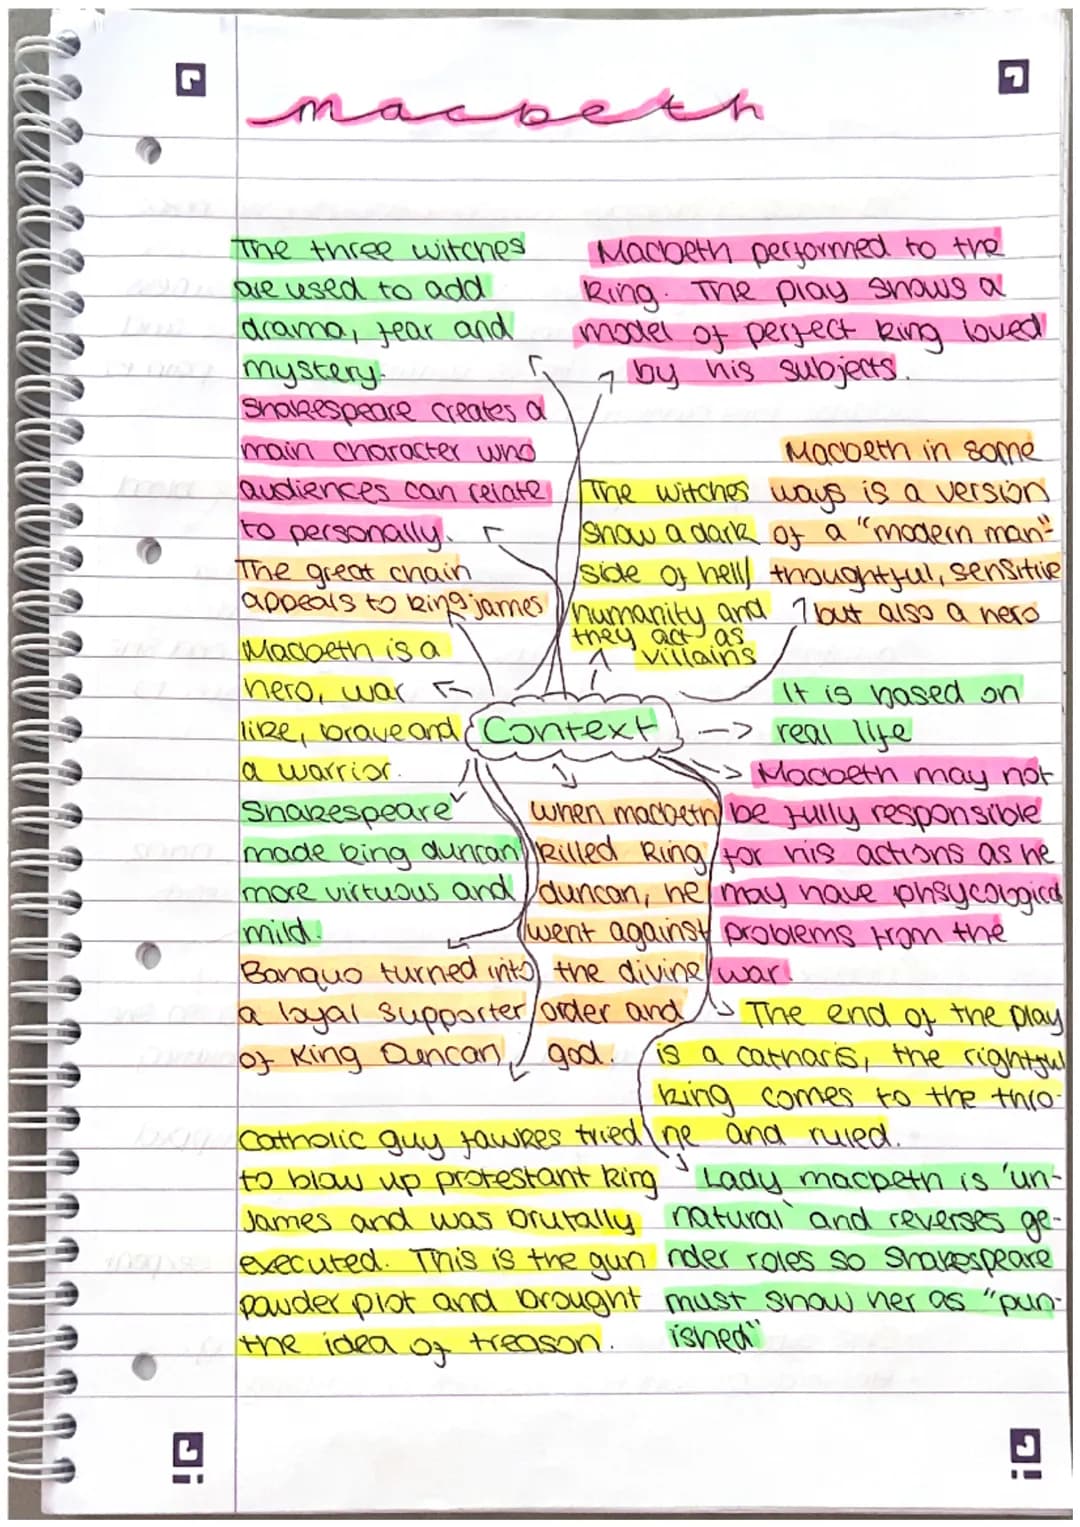 macbeth
The three witches
are used to add
drama, fear and
mystery.
Macbeth performed to the
king. The play shows a
model of perfect king loved
by his subjects.
Shakespeare creates a
main character who
audiences can relate
to personally.
The witches
show a dark
side of hell/
humanity and
they act as
villains
Macbeth in some
ways is a version
of a "modern man"-
thoughtful, sensitive
but also a hero
The great chain
appeals to king james
Macbeth is a
hero, war
like, brave and
a warrior.
Context
It is based on
real life
Shakespeare
made king duncan
more virtuous and
mild.
when macbeth
killed king
duncan, he
went against
the divine
order and
god.
Macbeth may not
be fully responsible
for his actions as he
may have phsycological
problems from the
war.
Banquo turned into
a loyal supporter
of King Duncan
The end of the play
is a catharis, the rightful
king comes to the thro-
ne and ruled.
Catholic guy fawkes tried
to blow up protestant king
James and was brutally
executed. This is the gun
powder plot and brought
the idea of treason.
Lady macbeth is 'un-
natural' and reverses ge-
nder roles so Shakespeare
must show her as "pun-
ished"